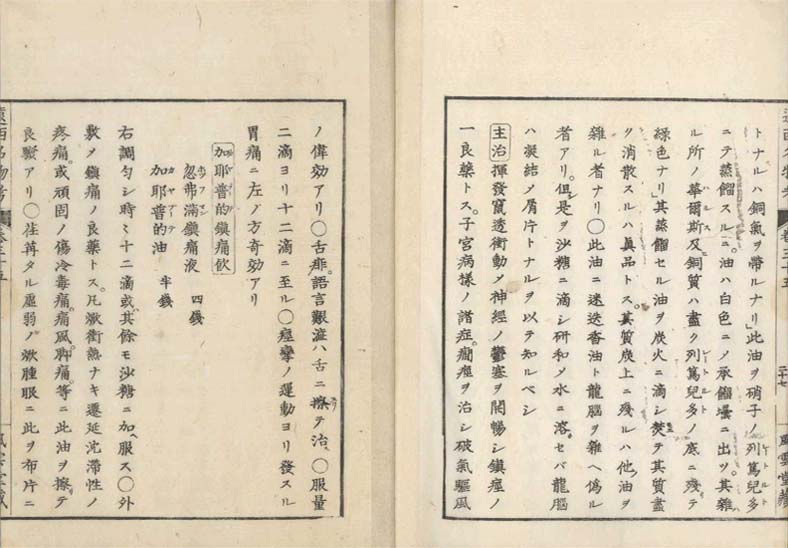 トナルハ銅氣ヲ帶ルナリ」此油ヲ硝子ノ列篤兒多
ニテ蒸餾スルニ。油ハ白色ニメ承餾壜ニ出ヅ。其雜
ル所ノ華爾斯及銅質ハ盡ク列篤兒多ノ底ニ殘テ
綠色ナリ」其蒸餾セル油ヲ炭火ニ滴シ焚テ其質盡
ク消散スルハ眞品トス。其質炭上ニ殘ルハ他油ヲ
雜ル者ナリ◯此油ニ迷迭香油ト龍腦ヲ雜ヘ僞ル
者アリ。但是ヲ沙糖ニ滴シ研和メ水ニ溶セバ龍腦
ハ凝結メ屑片トナルヲ以テ知ルベシ
主治 揮發竄透衝動メ神經ノ鬱塞ヲ開暢シ鎭痙ノ
一良藥トス。子宮病樣ノ諸症。癇痙ヲ治シ破氣驅風
ノ偉効アリ◯舌痱。語言艱澁ハ舌ニ擦テ治ス◯服量
二滴ヨリ十二滴ニ至ル◯痙攣ノ運動ヨリ發スル
胃痛ニ左ノ方奇効アリ
加耶普的鎭痛飲
忽弗滿鎭痛液 四錢
加耶普的油 半錢
右調匀シ時々十二滴或其餘モ沙糖ニ加ヘ服ス◯外
敷メ鎭痛ノ良藥トス。凡焮衝熱ナキ遷延沈滯性ノ
疼痛。或頑固ノ傷冷毒痛。痛風。胂痛。等ニ此油ヲ擦テ
良驗アリ◯荏苒タル虛弱ノ焮腫眼ニ此ヲ布片ニ
遠西名物考
卷三十五
風雲堂藏